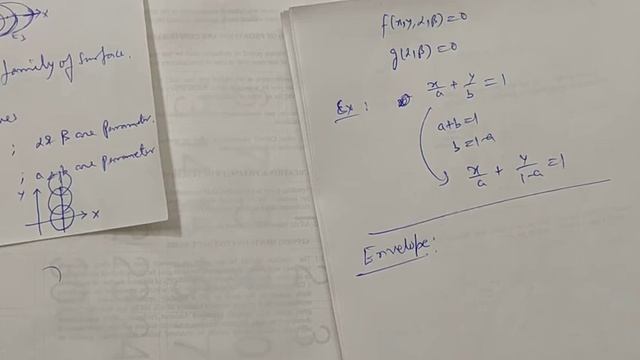 x
E3
family of surface.
; α & β are parameter.
; a & b are parameter
Y
X
f(x,y,α,β)=0
g(α,β)=0
Ex: x/a + y/b = 1
a+b=1
b=1-a
x/a + y/1-a = 1
Envelope: